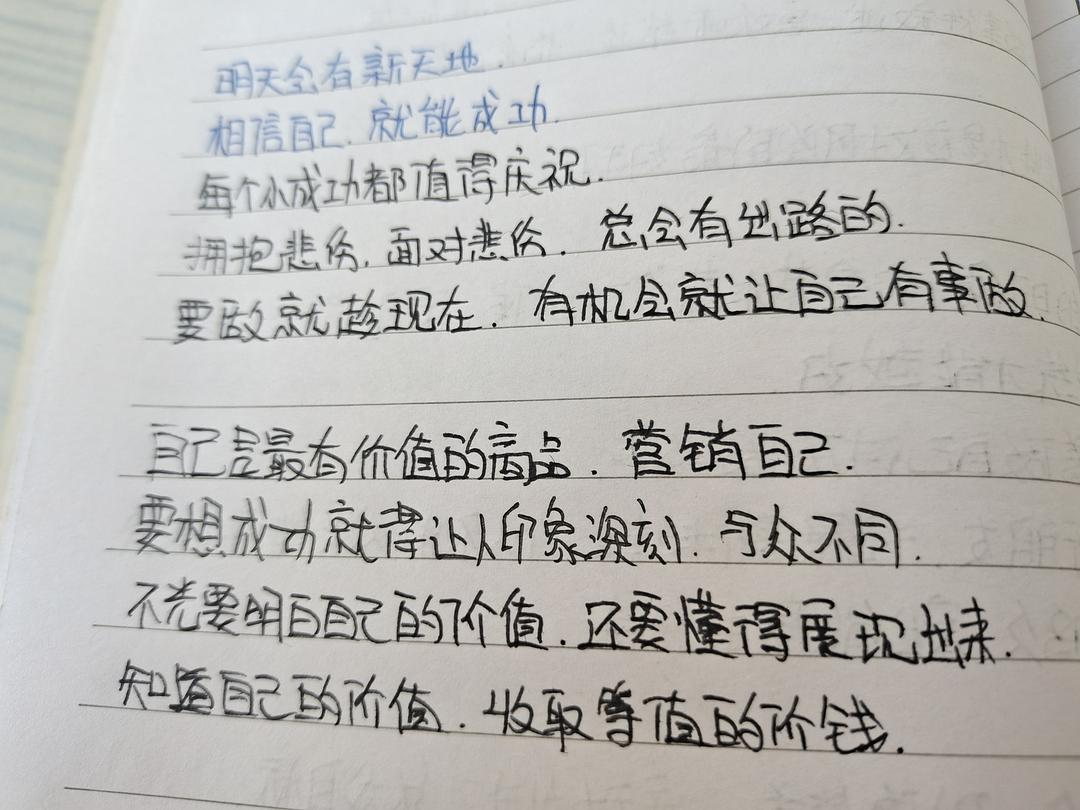 明天会有新天地.
相信自己.就能成功.
每个小成功都值得庆祝.
拥抱悲伤.面对悲伤.总会有出路的.
要做就趁现在.有机会就让自己有事做.
自己是最有价值的商品.营销自己.
要想成功就得让人印象深刻.与众不同.
不光要明白自己的价值.还要懂得展现出来.
知道自己的价值.收取等值的价钱.